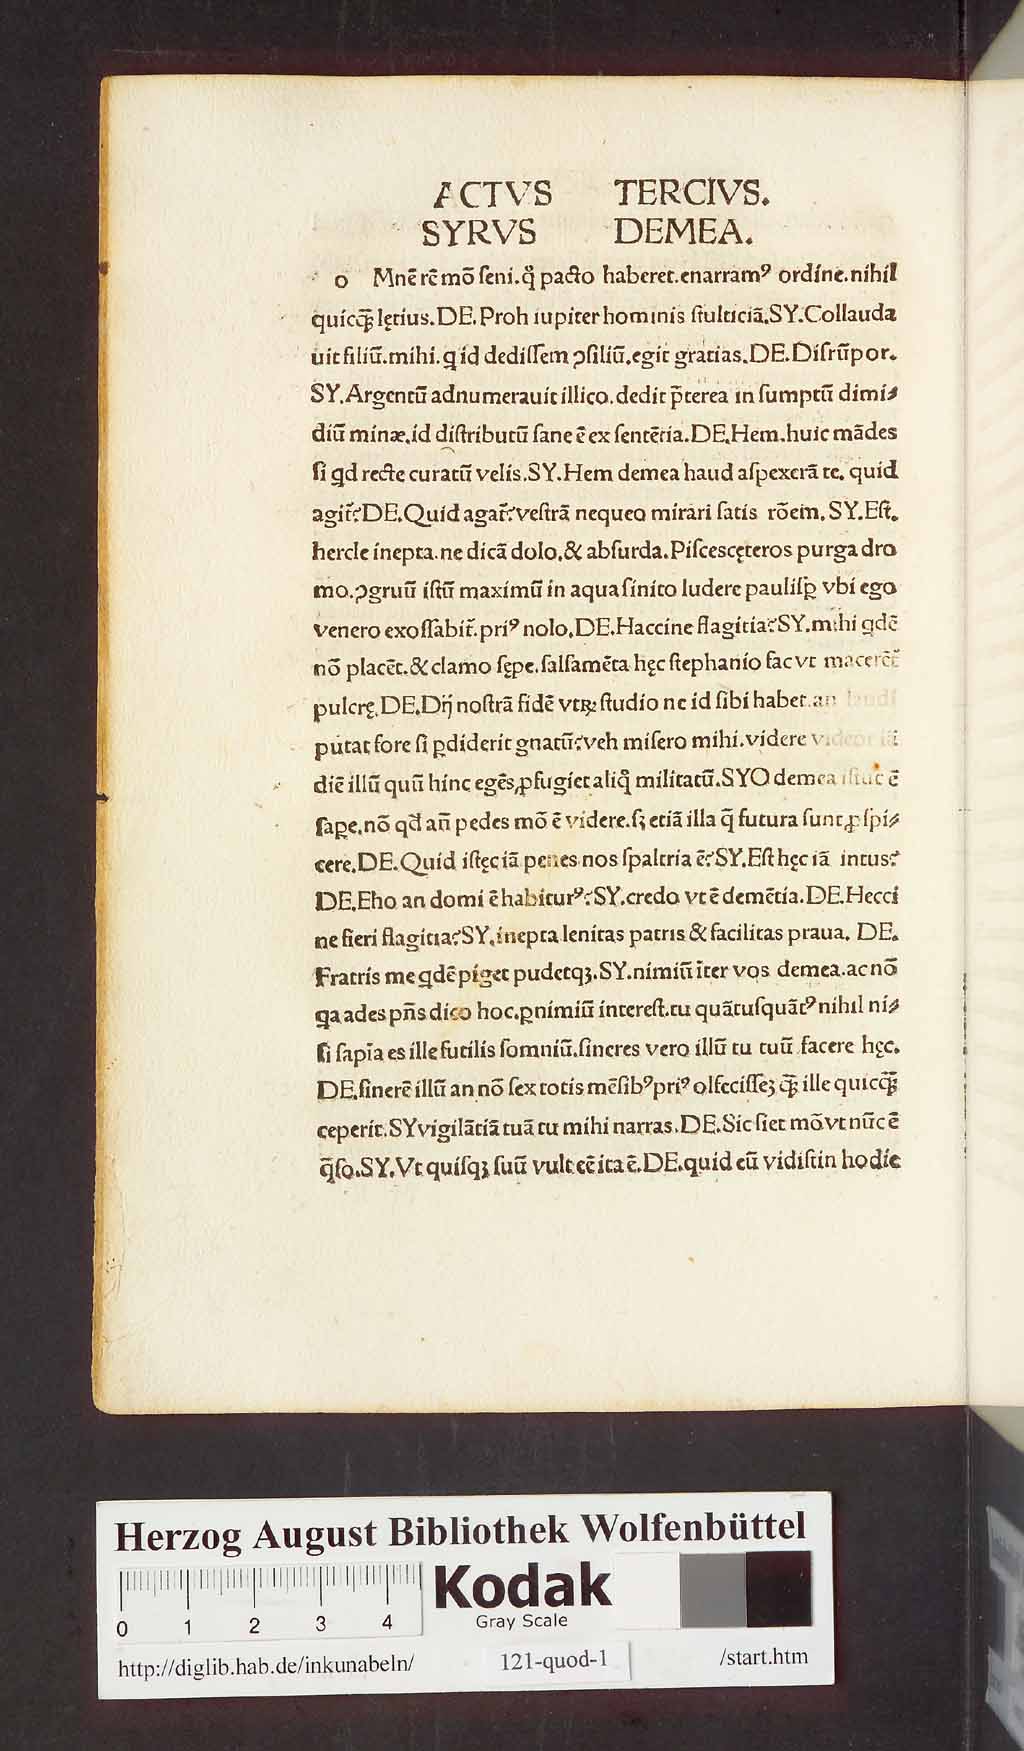 ACTVS TERCIVS.
SYRVS DEMEA.
o Mnē rē mō ſeni.qͦ pacto haberet.enarramꝰ ordine.nihil
quicq̄ȝ lętius.DE.Proh iupiter hominis ſtulticiā.SY.Collauda
uit filiū.mihi.q id dediſſem ꝯſiliū.egit gratias.DE.Diſrūpor.
SY.Argentū adnumerauit illico.dedit p̄terea in ſumptū dimi⸗
diū minæ.id diſtributū ſane ē ex ſentētia.DE.Hem.huic mādes
ſi qd recte curatū velis.SY.Hem demea haud aſpexerā te. quid
agit̄?DE.Quid agat̄?veſtrā nequeo mirari ſatis rōem.SY.Eſt.
hercle inepta.ne dicā dolo.& abſurda.Piſcescęteros purga dro
mo.ꝯgruū iſtū maximū in aqua ſinito ludere pauliſꝑ vbi ego
venero exoſſabit̄.priꝰ nolo.DE.Haccine flagitia?SY.mihi qdē
nō placēt.& clamo ſępe.ſalſamēta hęc ſtephanio fac vt macerēt̄
pulcrę.DE.Dij noſtrā fidē vtꝝ ſtudio ne id ſibi habet.an laudi
putat fore ſi ꝑdiderit gnatū?veh miſero mihi.videre videor iā
diē illū quū hinc egēs ꝓfugiet aliqͦ militatū.SYO demea iſtuc ē
ſape.nō qd̄ an̄ pedes mō ē videre.ſȝ etiā illa q̄ futura ſunt ꝓſpi⸗
cere.DE.Quid iſtęc iā penes nos ſpaltria ē?SY.Eſt hęc iā intus?
DE.Eho an domi ē habiturꝰ?SY.credo vt ē demētia.DE.Hecci
ne fieri flagitia?SY.inepta lenitas patris & facilitas praua. DE.
Fratris me qdē piget pudetqȝ.SY.nimiū īter vos demea.ac nō
qa ades pn̄s dico hoc.ꝑnimiū intereſt.tu quātuſquātꝰ nihil ni⸗
ſi ſapīa es ille futilis ſomniū.ſineres vero illū tu tuū facere hęc.
DE.ſinerē illū an nō ſex totis mēſibꝰ priꝰ olfeciſſeȝ q̄ȝ ille quicq̄ȝ
ceperit.SYvigilātiā tuā tu mihi narras.DE.Sic ſiet mō.vt nūc ē
q̄ſo.SY.Vt quiſqȝ ſuū vult eē ita ē.DE.quid eū vidiſtin hodie
Herzog August Bibliothek Wolfenbüttel
0 1 2 3 4
Kodak
Gray Scale
http://diglib.hab.de/inkunabeln/ 121-quod-1 /start.htm